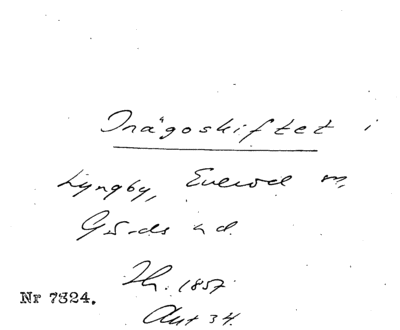 Inägoskiftet i
Lyngby, Everöd m,
Gärds hd.
Nr 7324.
1857
Akt 34.